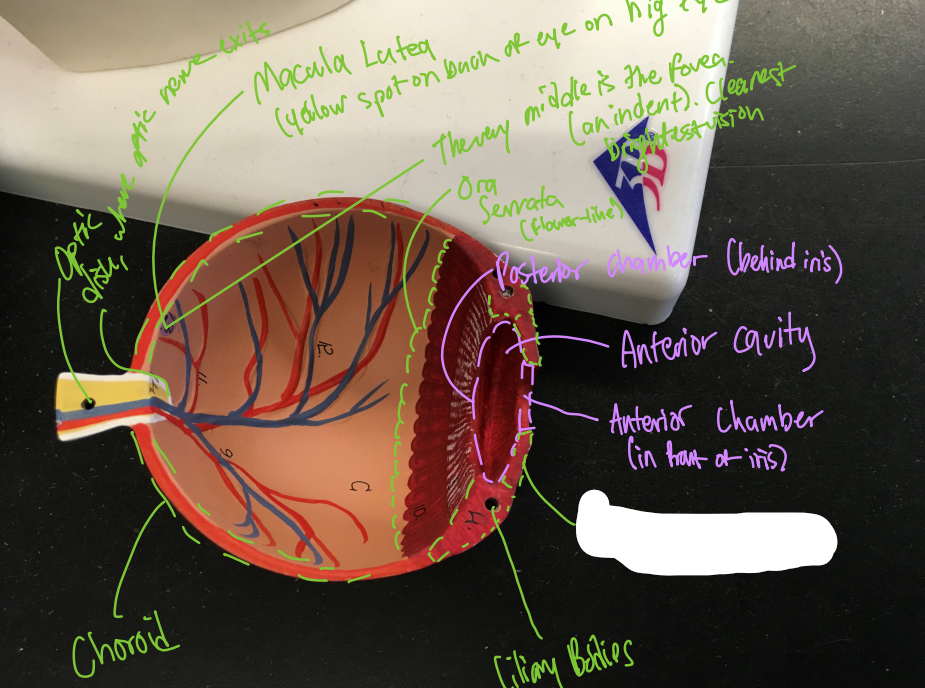 on big eye
Macula Lutea
(yellow spot on back of eye
where optic nerve exits
Optic
disk:
The very middle is the fovea.
(an indent). Clearest
brightest vision
3B
Ora
Serrata
(flower-like)
Posterior chamber (behind iris)
Anterior cavity
Anterior Chamber
(in front of iris)
12.
11.
9
10.
H.
Choroid
Ciliary Bodies